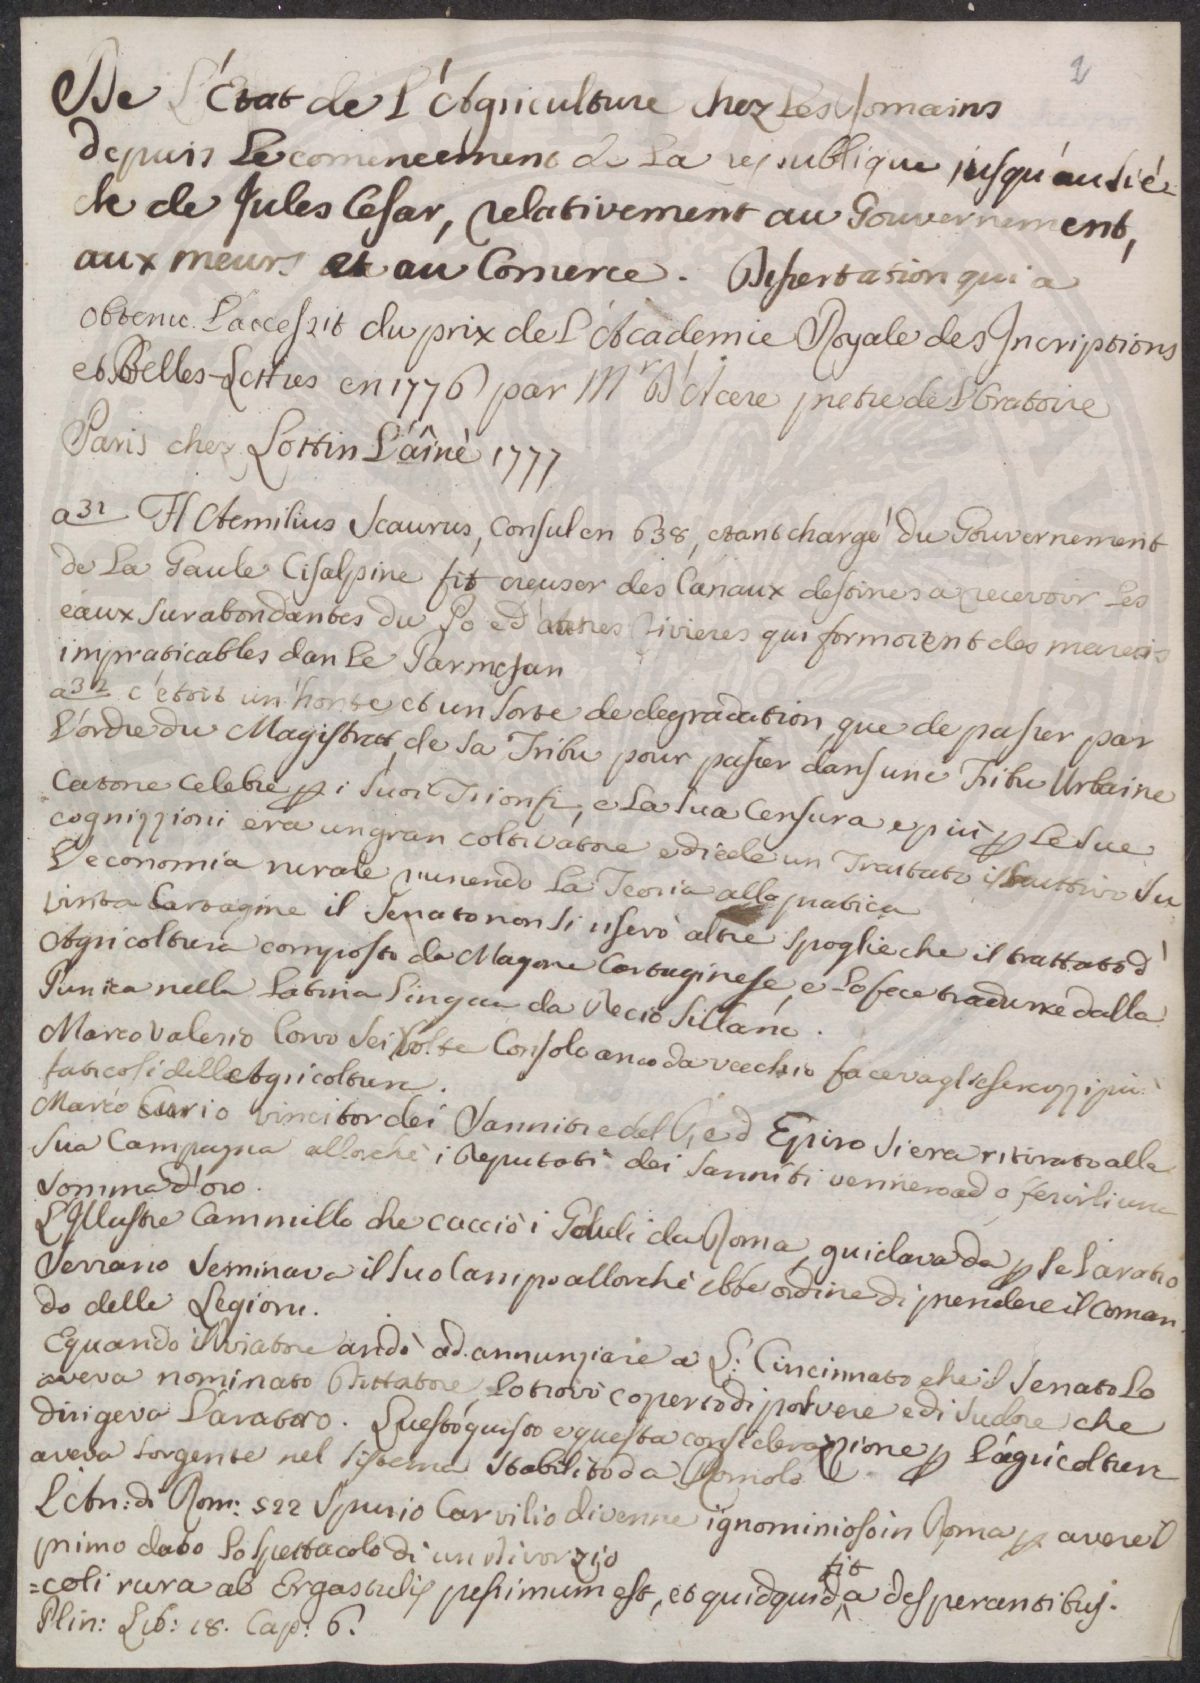 2
De L'Etat de L'Agriculture chez Les Romains
depuis Le comencement de La republique jusqu'au sié-
cle de Jules Cesar, relativement au Gouvernement,
aux meurs et au Comerce. Dissertation qui a
obtenu L'accessit du prix de L'Academie Royale des Incriptions
et Belles-Lettres en 1776 par Mr D'Arcere pretre de L'Oratoire
Paris chez Lottin L'âinè 1777
a 31 Aemilius Scaurus, Consul en 638, etant chargé du Gouvernement
de La Gaule Cisalpine fit creuser des Canaux destines a recevoir Les
eaux surabondantes du Po ed'autres Rivieres qui formoient des marais
impraticables dan Le Parmesan
a 32 c'étoit un'honte et un sorte de degradation, que de passer par
L'ordre du Magistrat, de sa Tribu pour passer dans une Tribu Urbaine
Catone celebre p i suoi Trionfi, e La sua Censura e più p Le sue
cognizzioni era un gran coltivatore e diede un Trattato istruttivo su
L'economia rurale riunendo La Teoria alla pratica
Vinta Cartagine il Senato non si riservò altre spoglie che il trattato d'
Agricoltura composto da Magone Cartaginese, e Lo fece tradurre dalla
Punica nella Latina Lingua da Decio Sillano.
Marco Valerio Corvo sei Volte Consolo anco da vecchio faceva gl'esercizzi più
faticosi dell'Agricoltura.
Marco Curio vincitor dei Sannitie del R, e d Epiro si era ritirato alla
Sua Campagna allorchè i Deputati dei Sanniti vennero ad oferirli una
Somma d'oro.
L'Illustre Cammillo che cacciò i Galli da Roma, guidava da p se L'aratro
Serrano Seminava il suo Campo allorchè ebbe ordine di prendere il Coman-
do delle Legioni.
E quando il Viatore andò ad annunziare a L: Cincinnato che il Senato Lo
aveva nominato Dittatore Lo trovò coperto di polvere e di sudore che
dirigeva L'aratro. Questo gusto e questa considerazione p L'agricoltura
aveva sorgente nel sistema stabilito da Romolo
L'An: di Rom: 522 Spurio Carvilio divenne ignominioso in Roma p avere il
primo dato Lo spettacolo di un Divorzio
=coli rura ab Ergastulis pessimum est, et quidquid fit a desperantibus.
Plin: Lib: 18. Cap: 6.